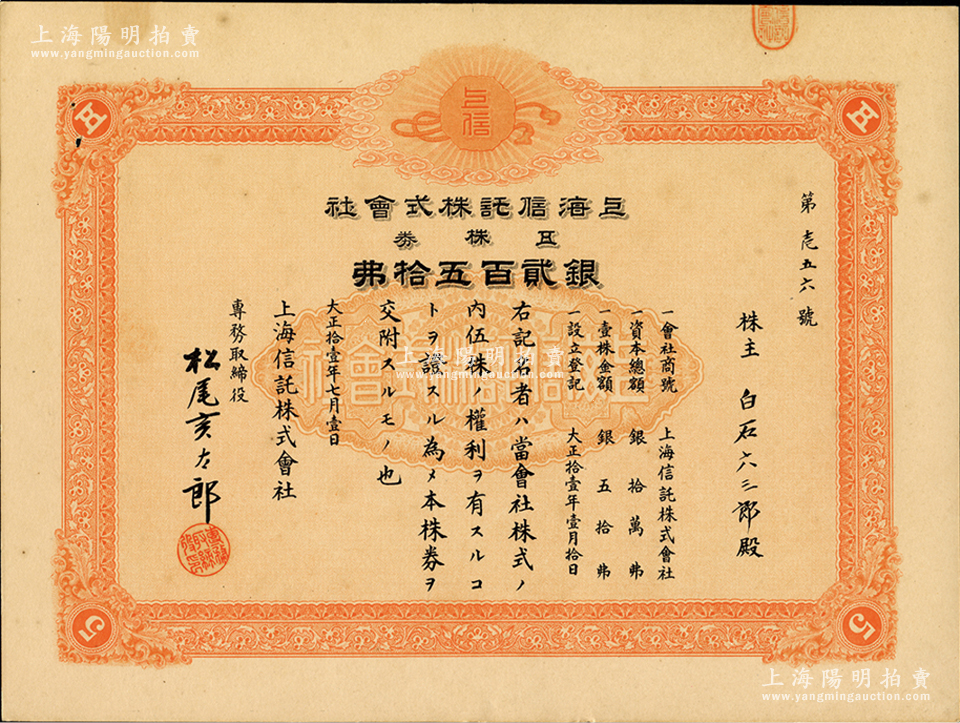 上海陽明拍賣
www.yangmingauction.com
上信
上海信託株式會社
五株券
銀貳百五拾弗
第壱五六號
株主 白石六三郎殿
一會社商號 上海信託株式會社
一資本總額 銀拾萬弗
一壹株金額 銀五拾弗
一設立登記 大正拾壹年壹月拾日
右記名者ハ當會社株式ノ
內伍株ノ權利ヲ有スルコ
トヲ證スル為メ本株券ヲ
交附スルモノ也
大正拾壹年七月壹日
上海信託株式會社
專務取締役
松尾亥太郎
上海信託株式會社
上海陽明拍賣
www.yangmingauction.com
五
五
5
5
上海陽明拍賣
www.yangmingauction.com